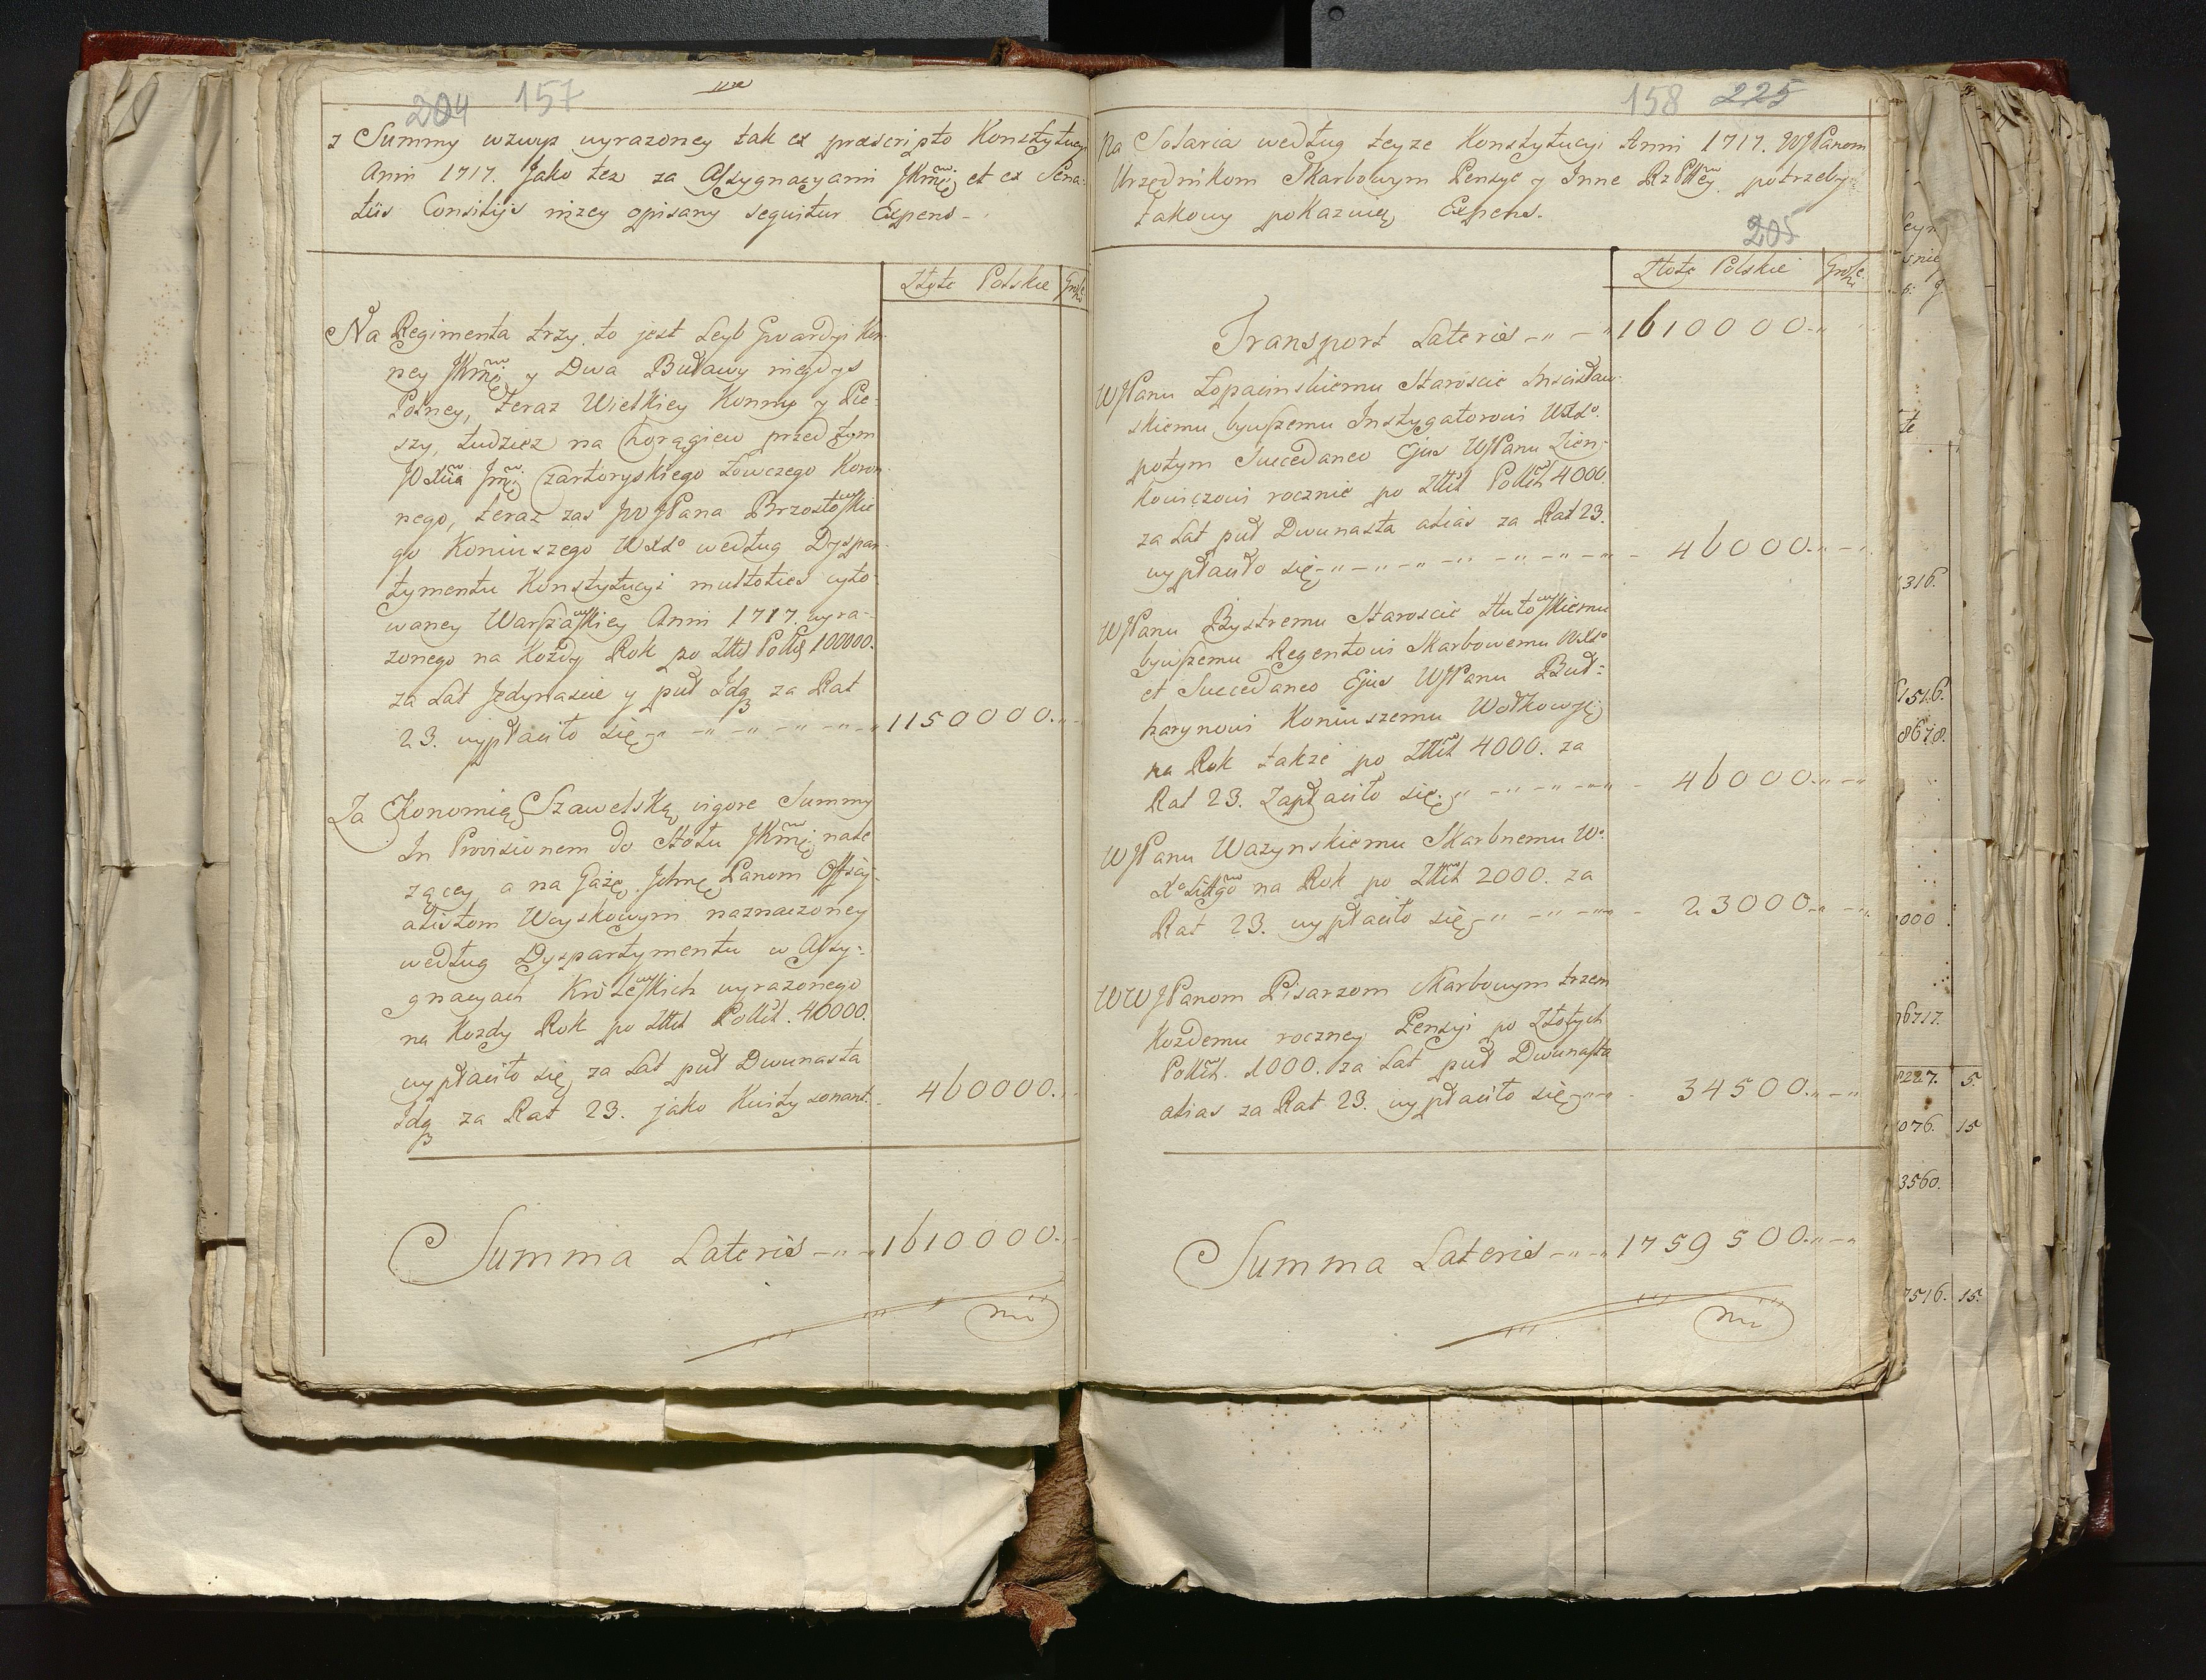 204 157
z Summy wzwyż wyrazoney tak ex præscripto Konstytucyi
Anni 1717. Jako tez za Assygnacyami JKmci et ex Sena-
tûs Consilijs nizey opisany sequitur Expens -
Złote Polskie Grosze
Na Regimenta trzy, to jest Leyb Gwardyi Kon-
ney JKmci y Dwa Buławy niegdys
Polney, teraz Wielkiey Konny y Pie-
szy, tudziez na Chorągiew przed tym
JOXcia Jmci Czartoryskiego Łowczego Koron-
nego, teraz zas JWJPana Brzostowskie
go Koniuszego WXLo według Dyspar-
tymentu Konstytucyi multoties cyto-
waney Warszawskiey Anni 1717. wyra-
zonego na Kozdy Rok po Złtt Polkt 100000.
za Lat Jedynascie y puł Idq za Rat
23. wypłaciło się 1150000.
Za Ekonomią Szawelską vigore Summy
In Provisionem do Stołu JKmci nale
zącey a na Gażę Ichmć Panom Offscy-
alistom Woyskowym naznaczoney
według Dyspartymentu w Assy-
gnacyach Krolewskich wyrazonego
na Kozdy Rok po Złtt Polkt. 40000.
wypłaciło się za Lat puł Dwunasta
Idq za Rat 23. jako Kwity sonant. 460000.
Summa Lateris 1610000.
158 225
Na Solaria według teyze Konstytucyi Anni 1717. WJPanom
Urzędnikom Skarbowym Pensye y Inne RzPltey potrzeby
takowy pokazuię Expens.
205
Złote Polskie Grosze
Transport Lateris 1610000.
WJPanu Łopacinskiemu Staroscie Mscisław-
skiemu bywszemu Instygatorowi WXLo.
potym Succedaneo Ejus WJPanu Zien-
kowiczowi rocznie po Złtt Polkt 4000.
za Lat puł Dwunasta alias za Rat 23.
wypłaciło się 46000.
WJPanu Bystremu Staroscie Stutowskiemu
bywszemu Regentowi Skarbowemu WXLo
et Succedaneo Ejus WJPanu Buł-
harynowi Koniuszemu Wołkowys.
na Rok takze po Złtt 4000. za
Rat 23. Zapłaciło się 46000.
WJPanu Wazynskiemu Skarbnemu Wo.
Xo Littgo na Rok po Złtt 2000. za
Rat 23. wypłaciło się 23000.
WWJPanom Pisarzom Skarbowym trzem
Kozdemu roczney Pensyi po Złotych
Polkt. 1000. za Lat puł Dwunasta
alias za Rat 23. wypłaciło się 34500.
Summa Lateris 1759500.
316.
1516.
8678.
000
96717.
2227. 5
076. 15
3560.
7516. 15.